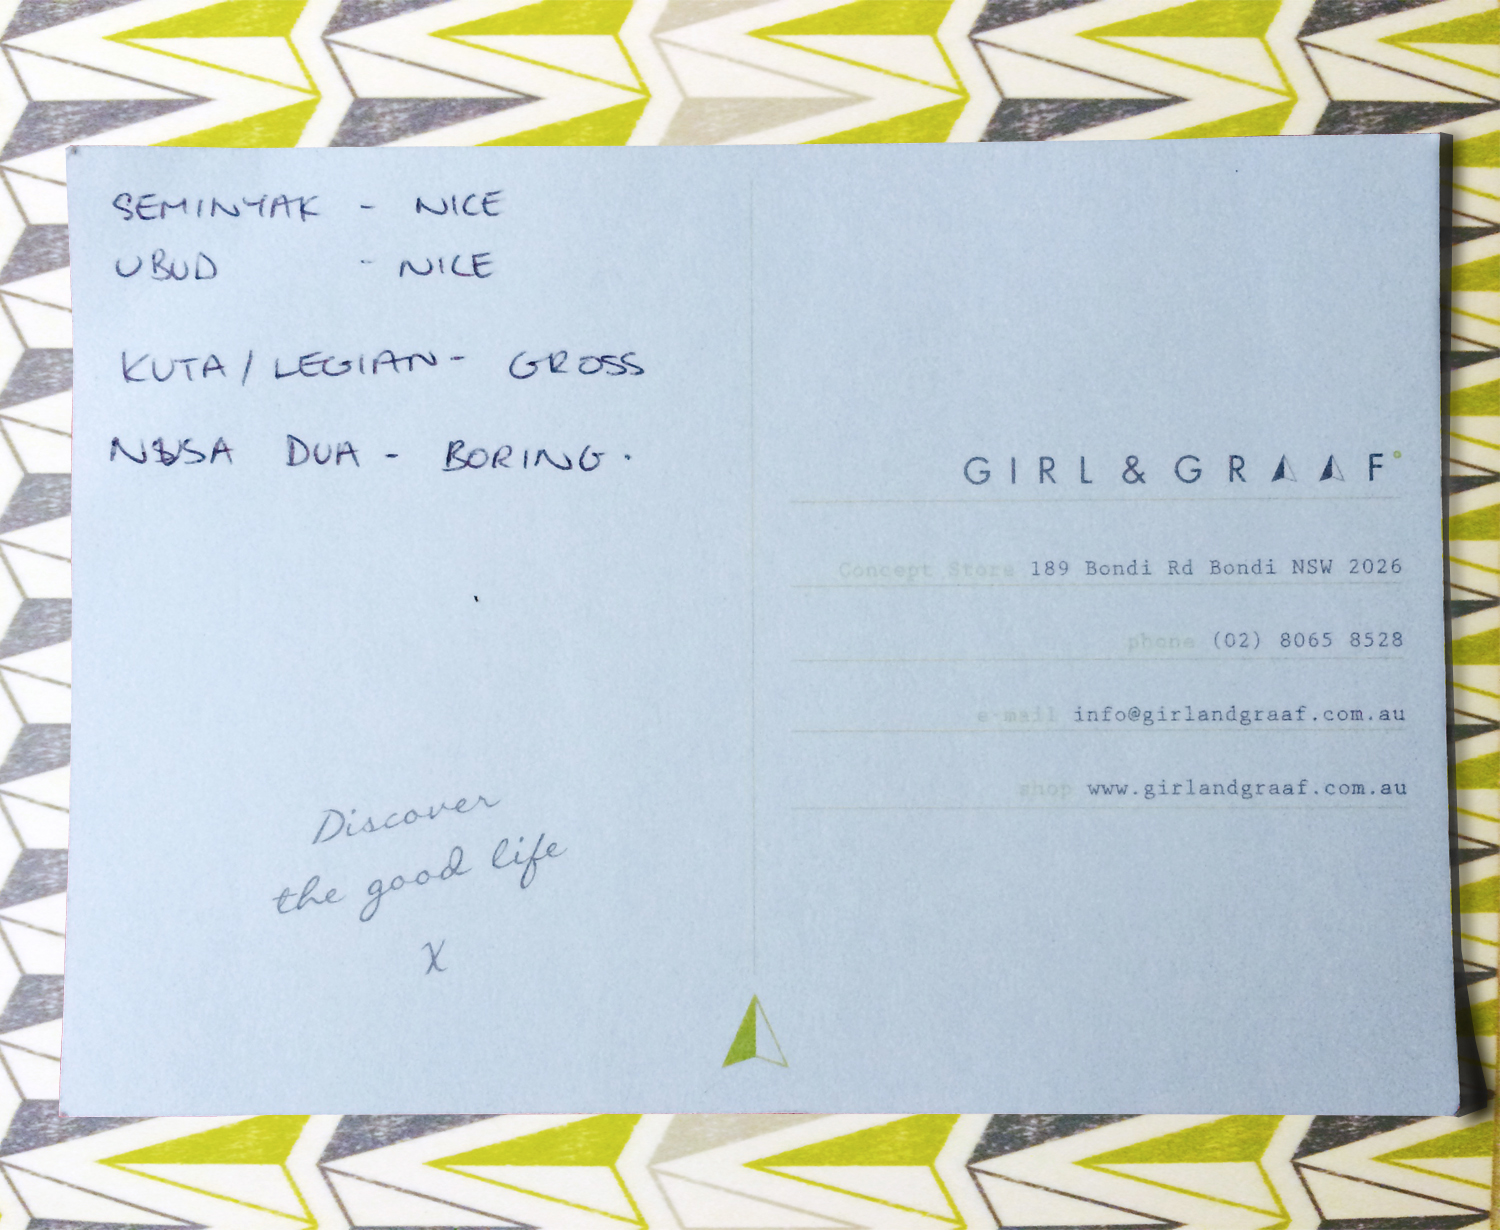 SEMINYAK - NICE
UBUD - NICE
KUTA / LEGIAN - GROSS
NUSA DUA - BORING.
Discover
the good life
x
GIRL & GRAAF
Concept Store 189 Bondi Rd Bondi NSW 2026
phone (02) 8065 8528
e-mail info@girlandgraaf.com.au
shop www.girlandgraaf.com.au